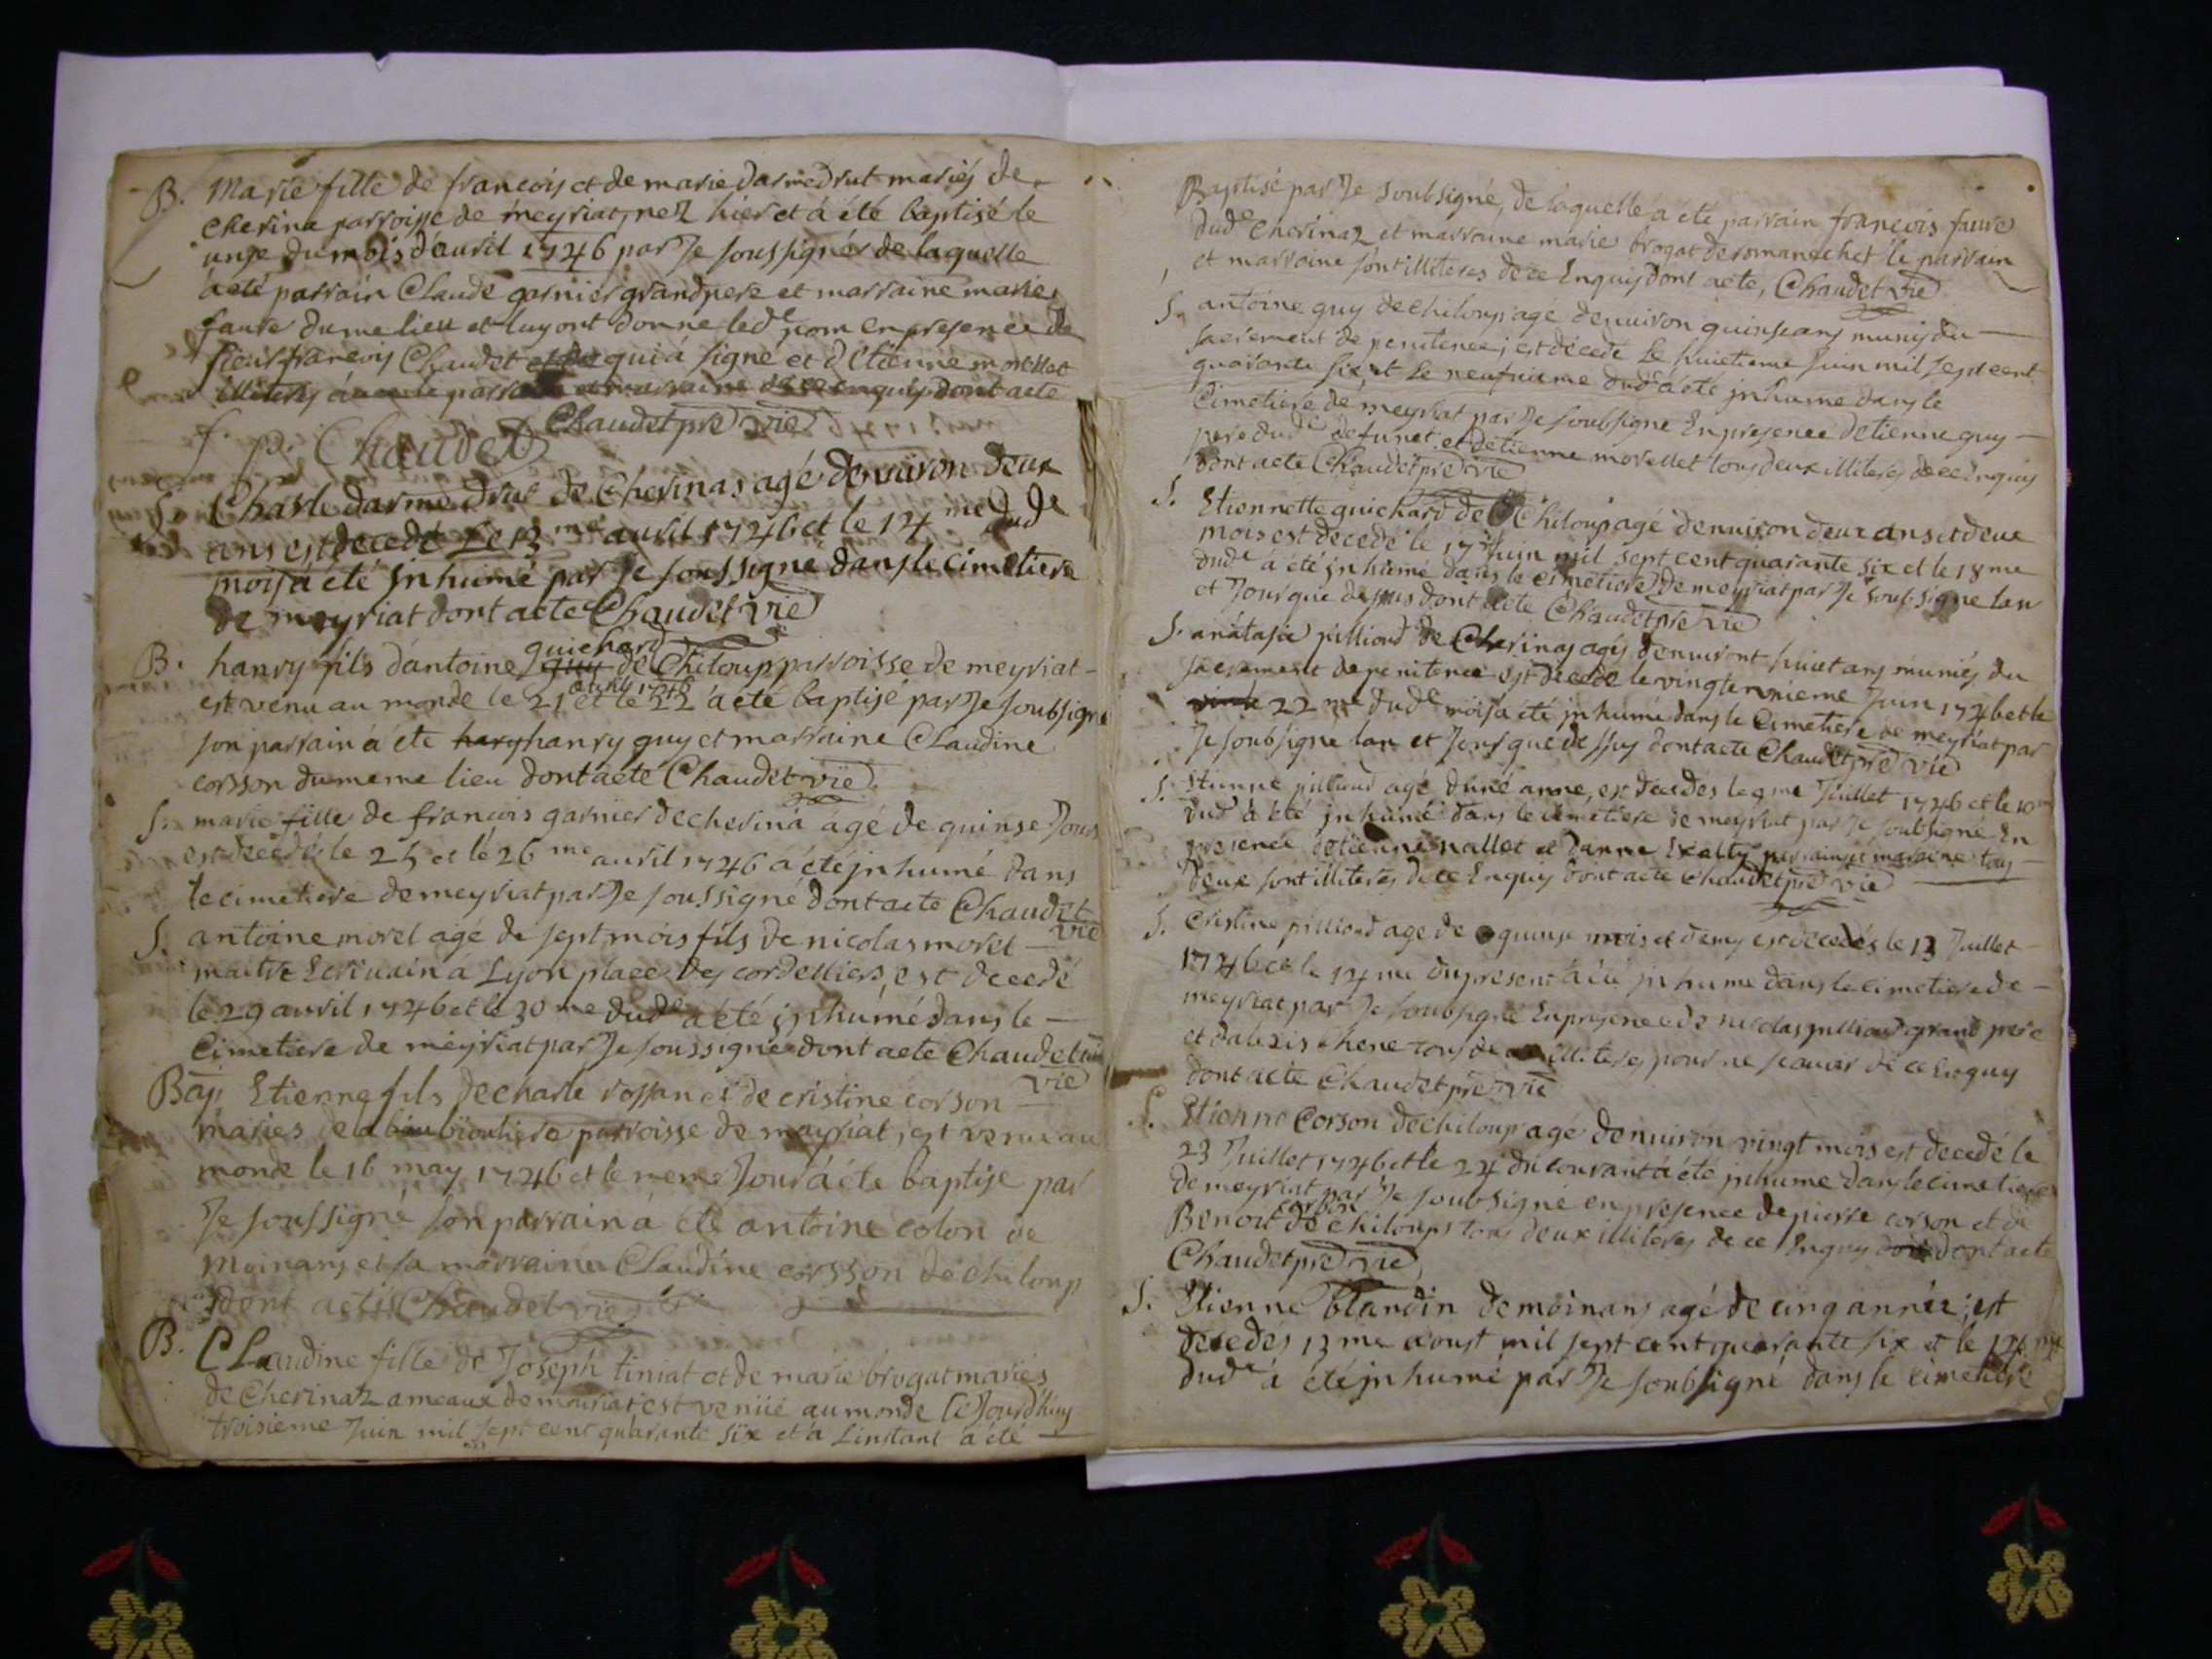 B. Marie fille de francois et de marie darmedrut mariés de
cherina parroisse de meyriat, nez hier et á été baptisé le
unze du mois d'auril 1746 par Je soussignés de laquelle
á eté parrain Claude garnier grandpere et marraine marie
faure dume lieu et luy ont donne led.e nom en presence de
sieur francois Chaudet qui á signé et d'Etienne morellet
illiteres auec le parrain et marraine de ce enquis dont acte
Chaudet pre vie
f. p. Chaudet
S. Charle darmedrut de Cherinas agé denuiron deux
ans est decedé Le 13.me auril 1746 et le 14.me dud.e
mois á été Jnhumé par Je soussigne dans le cimetiere
de meyriat dont acte Chaudet vie
quichard
B. hanry fils d'antoine guy de Chiloup parroisse de meyriat
auril 1746
est venu au monde le 21 et le 22 á eté baptisé par Je soubsigne
son parrain á éte hary hanry guy et marraine Claudine
corsson dumeme lieu dont acte Chaudet vie
S. marie fille de francois garnier de cherina ágé de quinse Jours
est decedé le 25 et le 26 me auril 1746 á été jnhumé dans
le cimetiere de meyriat par Je soussigné dont acte Chaudet
vie
S. antoine morel agé de sept mois fils de nicolas morel
maitre Ecriuain á Lyon place des cordelliers, est decedé
le 29 auril 1746 et le 30 me dud.e á été jnhumé dans le
Cimetiere de meyriat par Je soussigné dont acte Chaudet
vie
Bap Etienne fils de charle rossan et de cristine corson
maries de la parroisse de meyriat, est venu au
monde le 16 may 1746 et le meme Jour á éte baptise par
Je soussigné son parrain á éte antoine colon de
moinans et sa marraine Claudine corsson de chiloup
dont acte Chaudet vie
B. CLaudine fille de Joseph tiniat et de marie brogat mariés
de Cherinaz ameaux de mouriat est venüe au monde le Jourd'huy
troisieme Juin mil sept cent quarante six et á Linstant á été
Baptisé par Je soubsigné, de laquelle á eté parrain françois faure
dud.e Cherinaz et marraine marie brogat de romanechet le parrain
et marraine sont illiteres de ce Enquis dont acte, Chaudet vie
S. antoine guy de chiloup agé denuiron quinse ans munis du
sacrement de penitence; est décedé Le huictieme Juin mil sept cent
quarante six et Le neufuieme dud.e á eté jnhume dans le
Cimetiere de meyriat par Je soubsigne En presence detienne guy
pere dud.e defunct et detienne morellet tous deux illiteres de ce Enquis
dont acte Chaudet pre vie
S. Etiennette guichard de Chiloup agé denuiron deux ans et deux
mois est decedé le 17 Juin mil sept cent quarante six et le 18 me
dud.e á été jnhumé dans le cimetiere de meyriat par Je soubsigne lan
et Jour que dessus dont acte Chaudet pre vie
S. anatasie pilliond de Cherinas agés denuiront huict ans muniés du
sacrement de penitence est decedé le vingte unieme Juin 1746 et le
22 me dud.e mois á été jnhumé dans le Cimetiere de meyriat par
Je soubsigne lan et Jour que dessus dont acte Chaudet pre vie
S. Etienne pilliond agé dune anne, est decedés le 9 me Juillet 1746 et le 10 me
dud.e á été jnhumé dans le cimetiere de meyriat par Je soubsigné En
presence detienne nallet et danne parrain et maraine tous
deux sont illiteres de ce Enquis dont acte Chaudet pre vie
S. Cristine pilliond age de quinse mois et demy est decedés le 13 Juillet
1746 et le 14 me du present á été jnhume dans le cimetiere de
meyriat par Je soubsigné En presence de nicolas pilliond grand pere
et dalexis chene tous de illiteres pour ne scauoir de ce Enquis
dont acte Chaudet pre vie
S. Etienne Corson de chiloup agé denuiron vingt mois est decedé le
23 Juillet 1746 et le 24 du courant á été jnhume dans le cimetiere
de meyriat par Je soubsigné en presence de pierre corson et de
corson
Benoit de chiloups tous deux illiteres de ce Enquis dont acte
Chaudet pre vie
S. Etienne blandin de moinans agé de cinq année; est
decedés 13 me aoust mil sept cent quarante six et le 14 me
dud.e á été jnhumé par Je soubsigné dans le cimetiere